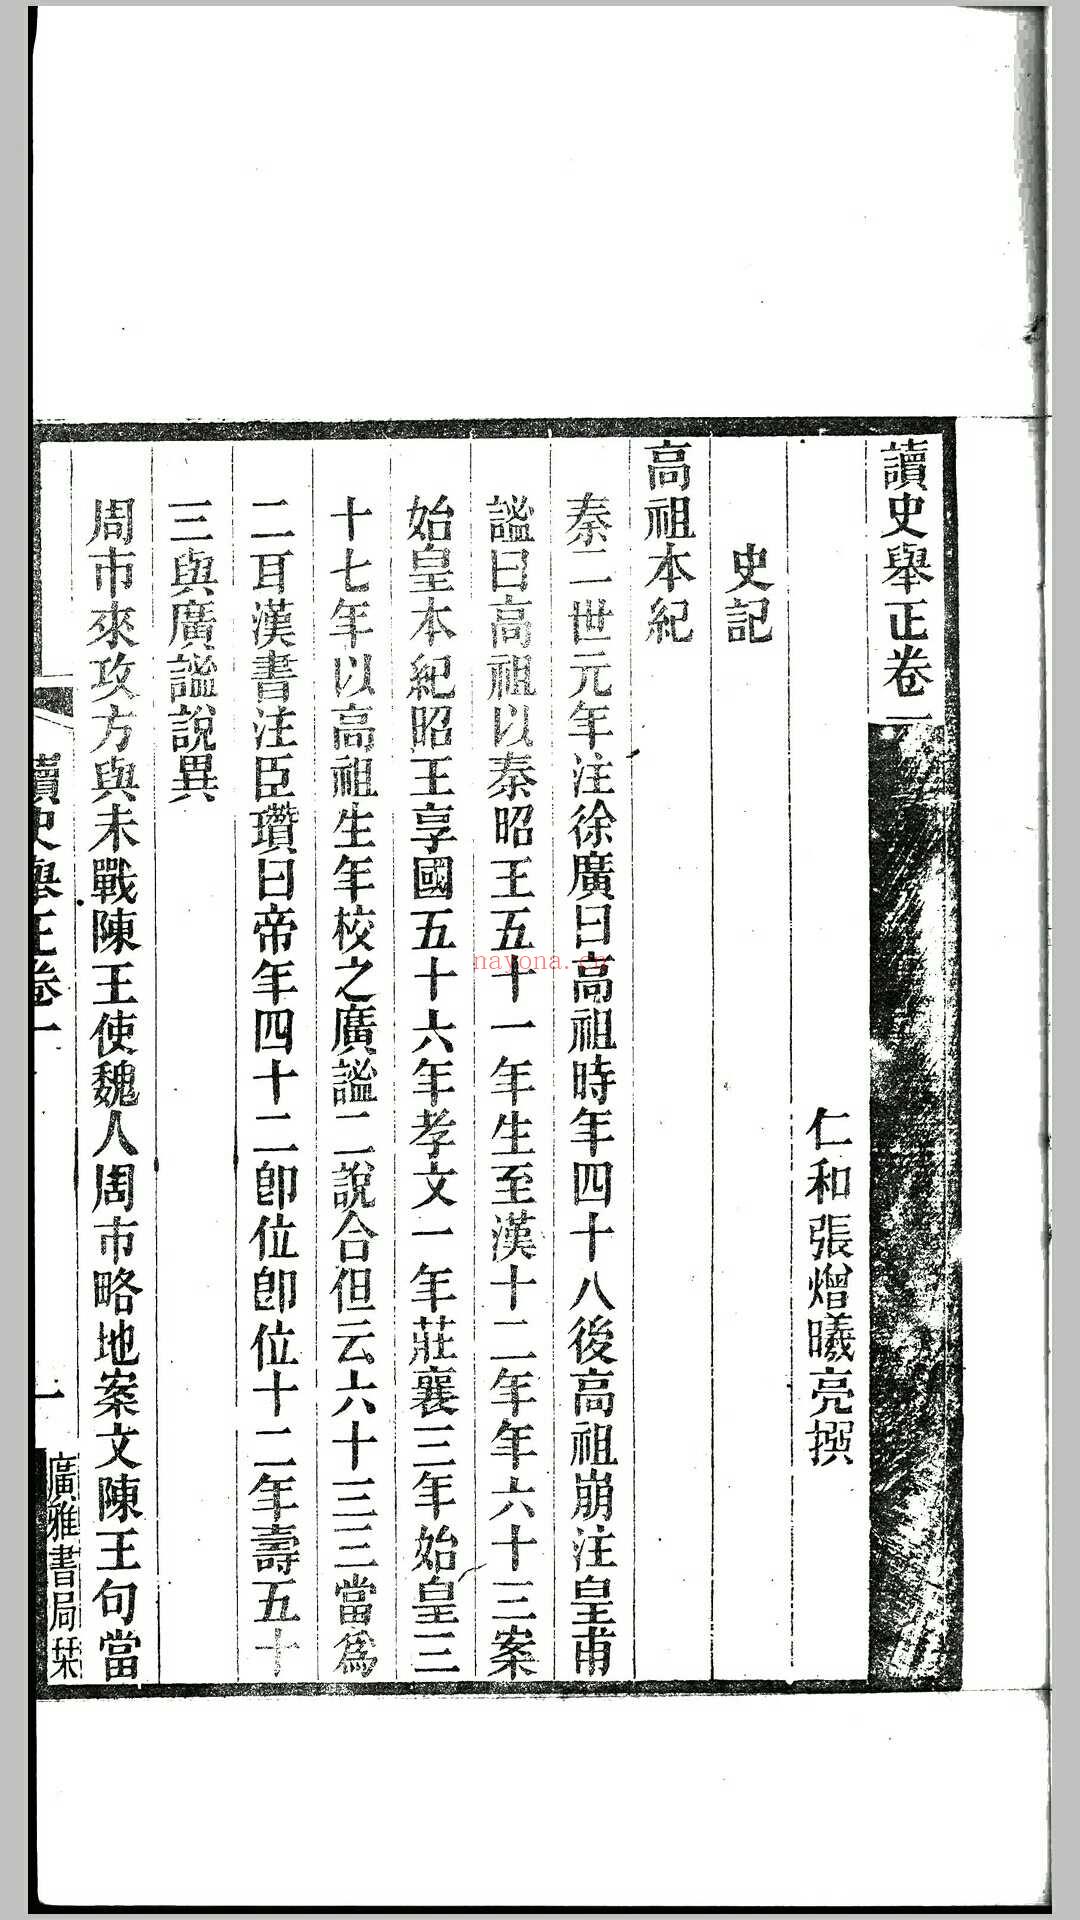 讀史舉正卷一
仁和張熷曦亮撰
史記
高祖本紀
秦二世元年注徐廣曰高祖時年四十八後高祖崩注皇甫
謐曰高祖以秦昭王五十一年生至漢十二年年六十三案
始皇本紀昭王享國五十六年孝文一年莊襄三年始皇三
十七年以高祖生年校之廣謐二說合但云六十三三當為
二耳漢書注臣瓚曰帝年四十二卽位卽位十二年壽五十
三與廣謐說異
周市來攻方與未戰陳王使魏人周市略地案文陳王句當
讀史舉正卷一
一
廣雅書局栞
nayona.cn